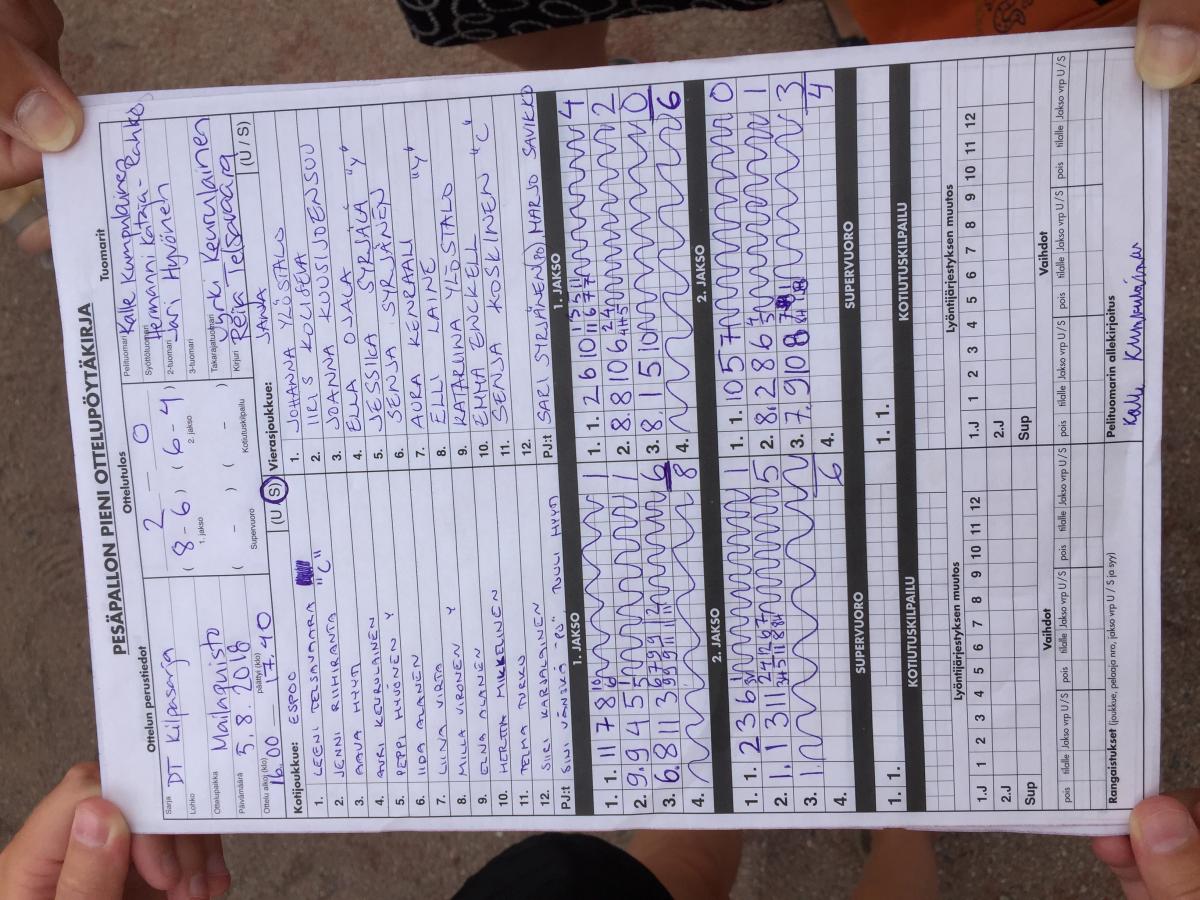 PESÄPALLON PIENI OTTELUPÖYTÄKIRJA
Ottelun perustiedot
Sarja DT Kilpasarja
Lohko
Ottelupaikka Mailapuisto
Päivämäärä 5.8.2018
Ottelu alkoi (klo) 16.00 päättyi (klo) 17.40
Ottelutulos
2 – 0
( 8 - 6 ) ( 6 - 4 )
1. jakso 2. jakso
( - ) ( - )
Supervuoro Kotiutuskilpailu
Tuomarit
Pelituomari Kalle Kumpulainen
Syöttötuomari Hermanni Kataja-Rahko
2-tuomari Jari Hyvönen
3-tuomari
Takarajatuomari Jyrki Keurulainen
Kirjuri Reija Telsavaara
JANNA
Kotijoukkue: ESPOO (U / S)
1. LEENI TELSAVAARA "C"
2. JENNI RIIHIRANTA
3. AAVA HYYTI
4. AURI KEURULAINEN
5. PEPPI HYVÖNEN Y
6. IIDA ALANEN
7. LIINA VIRTA
8. MILLA VIRONEN Y
9. ELNA ALANEN
10. HERTTA MIKKELINEN
11. TELMA TURKU
12. SIIRI KARJALAINEN
PJ:t SINI VÄNSKÄ "PJ" TUULI HYYTI
Vierasjoukkue: (U / S)
1. JOHANNA YLÖSTALO
2. IIRIS KOLIPERA
3. JOANNA KUUSIJOENSUU
4. ELLA OJALA
5. JESSICA SYRJÄLÄ "Y"
6. SENJA SYRJÄNEN
7. AURA KENRAALI "Y"
8. ELLI LAINE
9. KATARIINA YLÖSTALO
10. EMMA ENCKELL "C"
11. SENJA KOSKINEN
12.
PJ:t SARI SYRJÄNEN (PJ) MARJO SAVIKKO
1. JAKSO
1. 1. 11 7 8 6 1
2. 9. 9 4 5 5 1
3. 6. 8 11 3 6
4. 8
1. JAKSO
1. 1. 2 6 10 4
2. 8. 8 10 6 2
3. 8. 1 5 10 0
4. 6
2. JAKSO
1. 1. 2 3 6 1
2. 1. 1 3 11 5
3. 1.
4. 6
2. JAKSO
1. 1. 10 5 7 0
2. 8. 2 8 6 1
3. 7. 9 10 8 3
4. 4
SUPERVUORO
1. 1.
SUPERVUORO
1. 1.
KOTIUTUSKILPAILU
KOTIUTUSKILPAILU
Lyöntijärjestyksen muutos
1.J 1 2 3 4 5 6 7 8 9 10 11 12
2.J
Sup
Lyöntijärjestyksen muutos
1.J 1 2 3 4 5 6 7 8 9 10 11 12
2.J
Sup
Vaihdot
pois tilalle Jakso vrp U / S pois tilalle Jakso vrp U / S pois tilalle Jakso vrp U / S
Vaihdot
pois tilalle Jakso vrp U / S pois tilalle Jakso vrp U / S pois tilalle Jakso vrp U / S
Rangaistukset (joukkue, pelaaja nro, jakso vrp, U / S ja syy)
Pelituomarin allekirjoitus
Kalle Kumpulainen